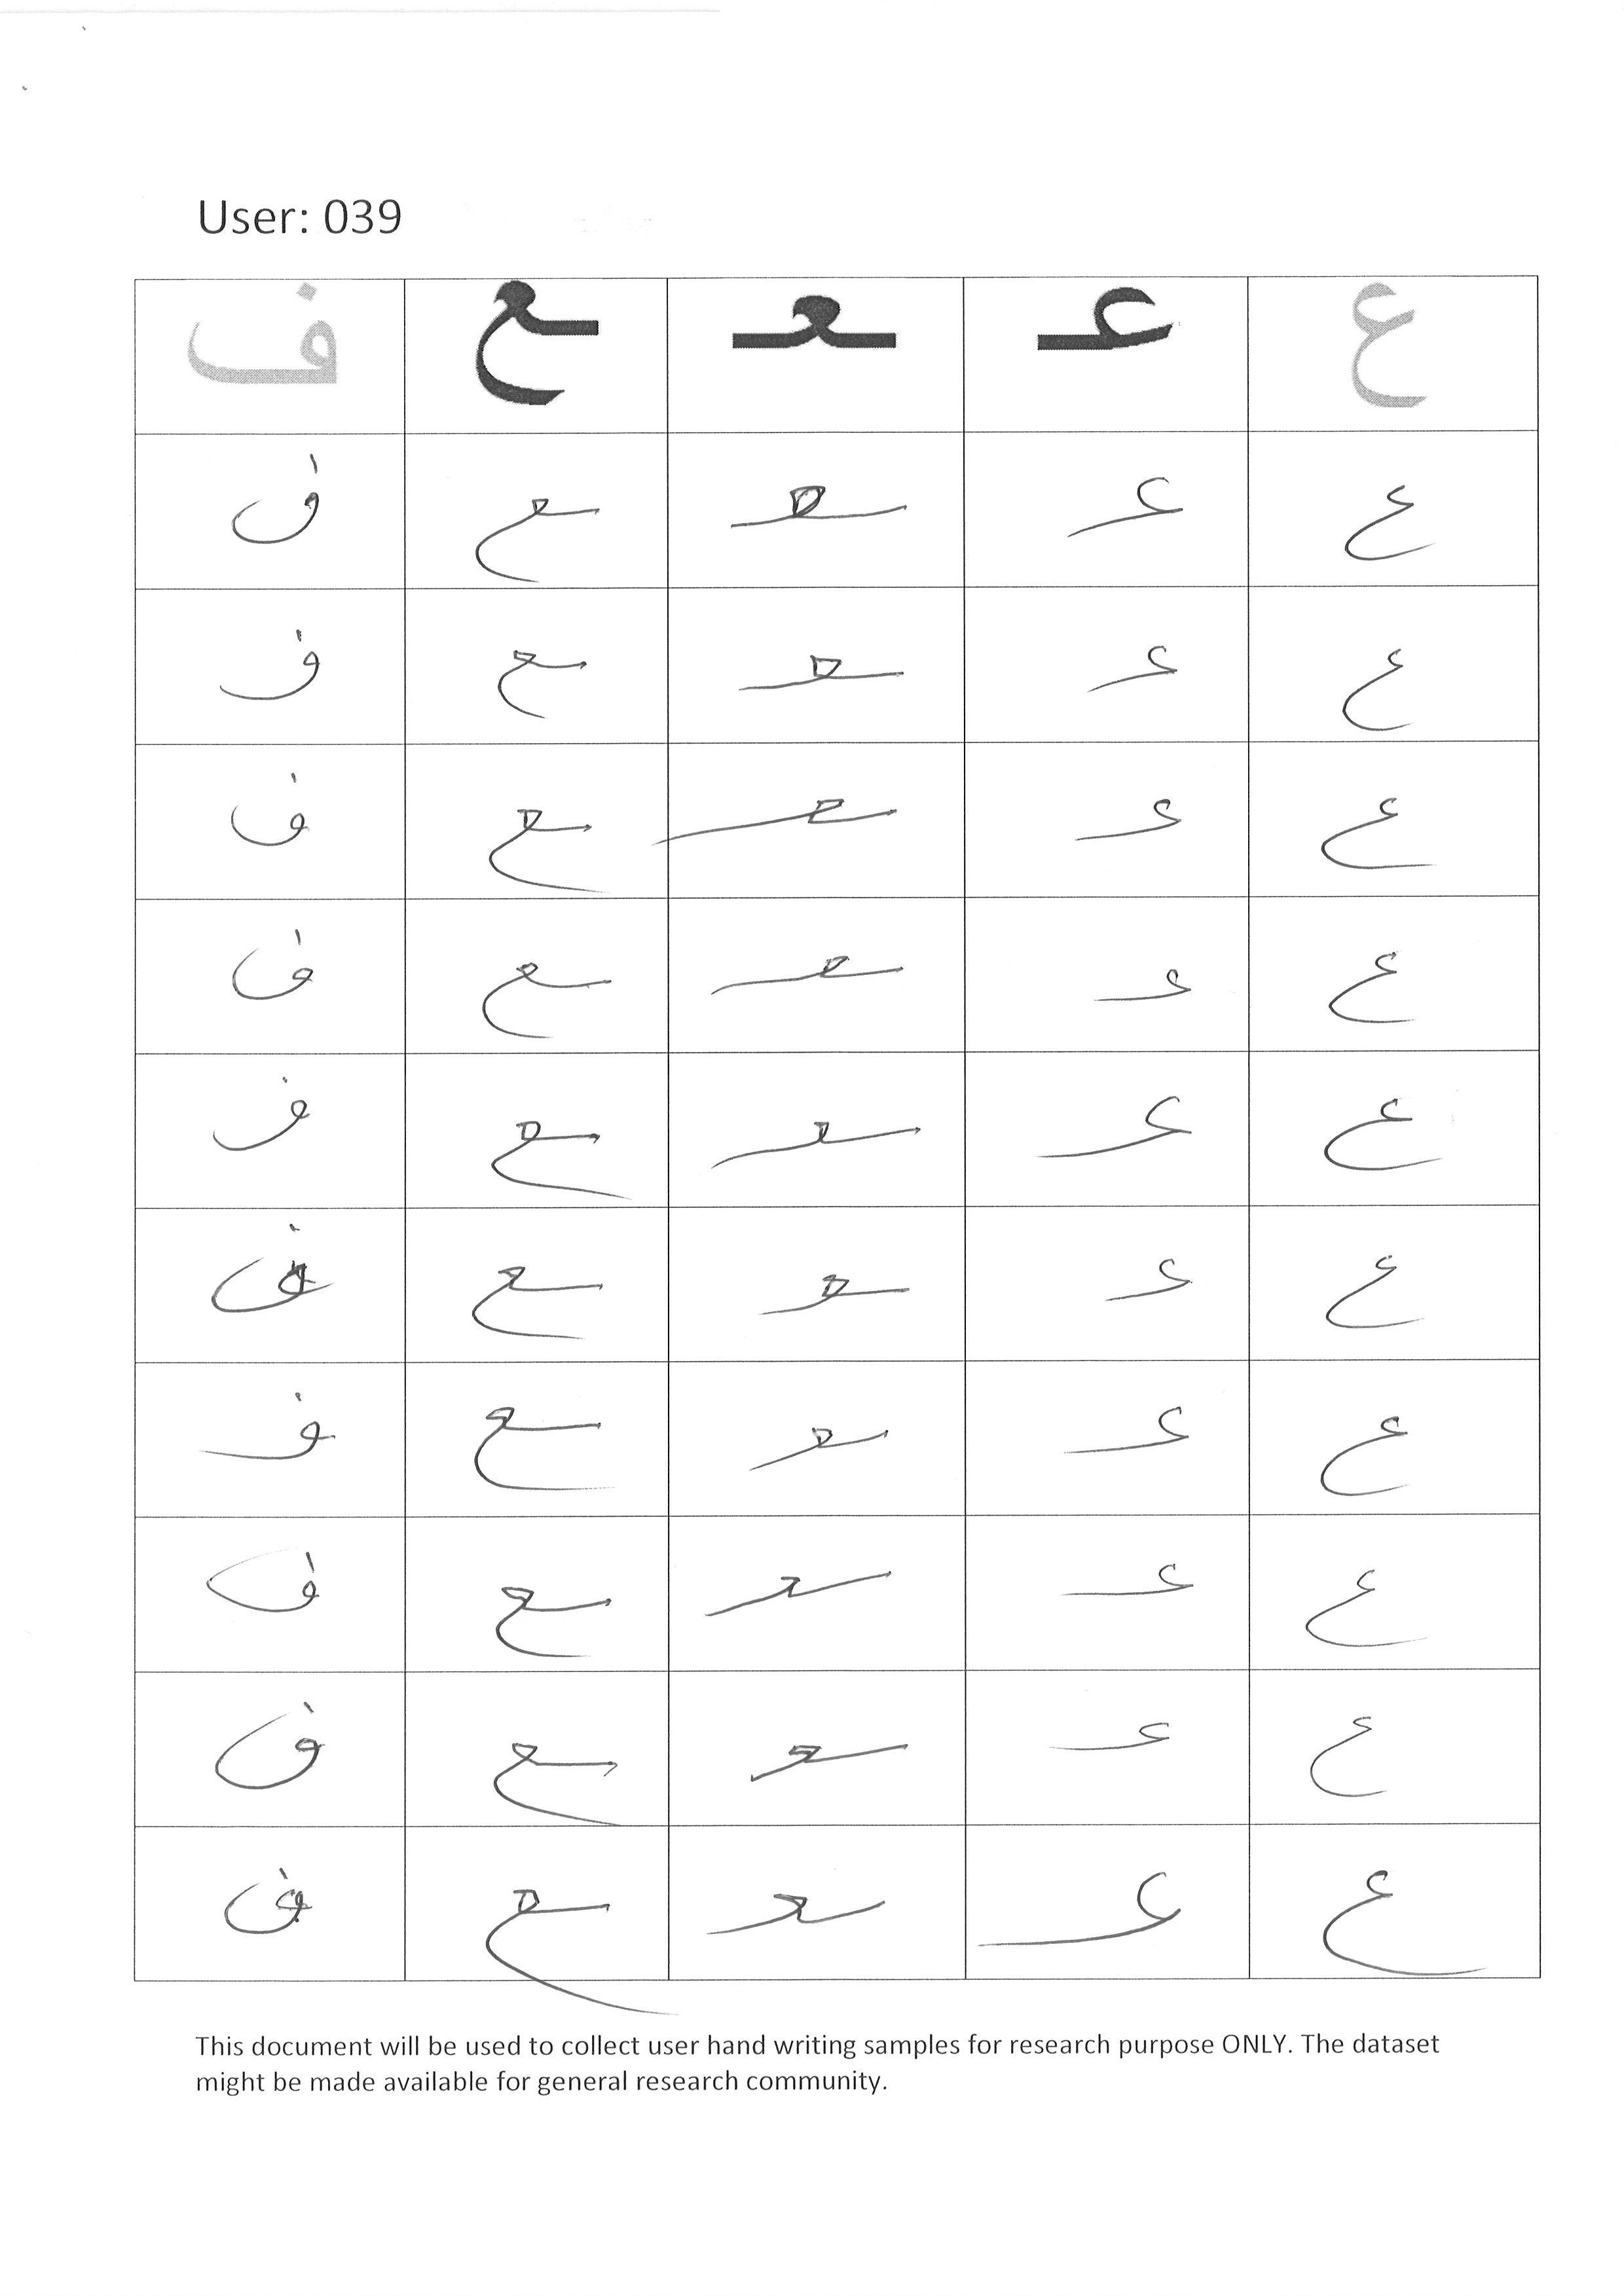 User: 039
ع عـ ـعـ ـع ف
ع عـ ـعـ ـع ف
ع عـ ـعـ ـع ف
ع عـ ـعـ ـع ف
ع عـ ـعـ ـع ف
ع عـ ـعـ ـع ف
ع عـ ـعـ ـع ف
ع عـ ـعـ ـع ف
ع عـ ـعـ ـع ف
ع عـ ـعـ ـع ف
ع عـ ـعـ ـع ف
This document will be used to collect user hand writing samples for research purpose ONLY. The dataset
might be made available for general research community.